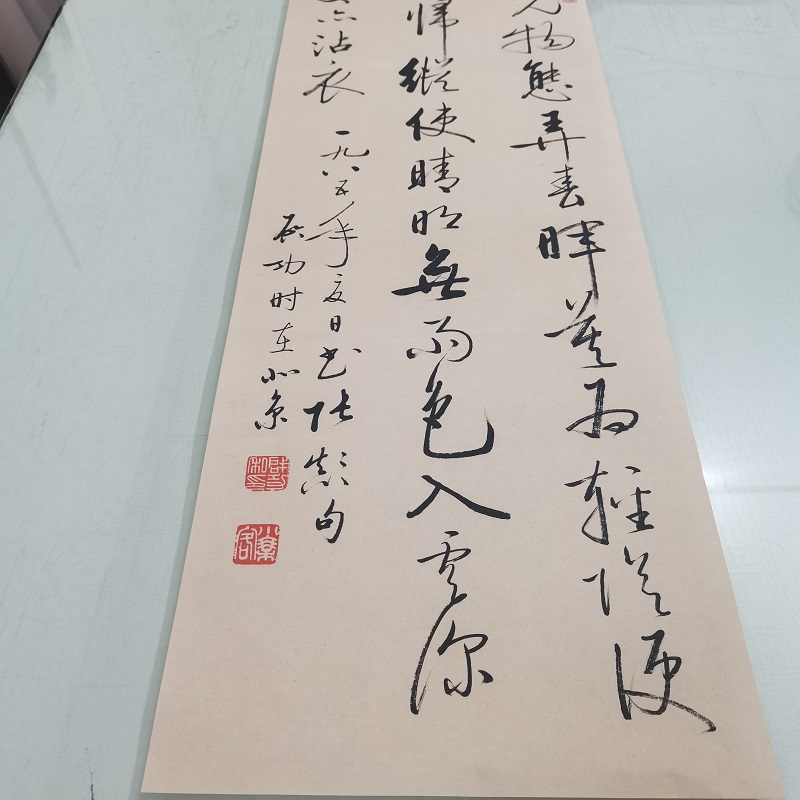 光物態弄春暉莫為輕陰便
歸縱使晴明無雨色入雲深
亦沾衣 一九八五年夏日書張顛句
啟功时在北京
啟功私印
小乘客